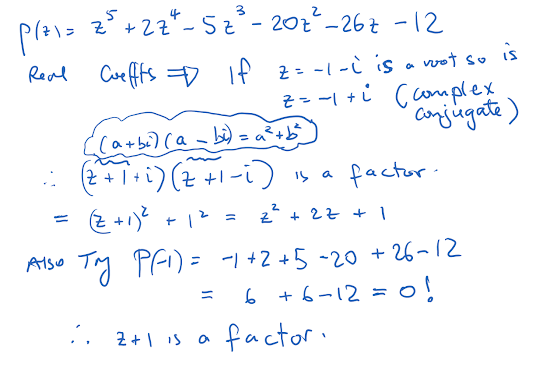 P(z) = z⁵ + 2z⁴ - 5z³ - 20z² - 26z - 12
Real Coeffts ⇒ If z = -1-i is a root so is
z = -1+i (complex conjugate)
(a+bi)(a-bi) = a²+b²
∴ (z+1+i)(z+1-i) is a factor.
= (z+1)² + 1² = z² + 2z + 1
Also Try P(-1) = -1+2+5-20+26-12
= 6 + 6 - 12 = 0!
∴ z+1 is a factor.